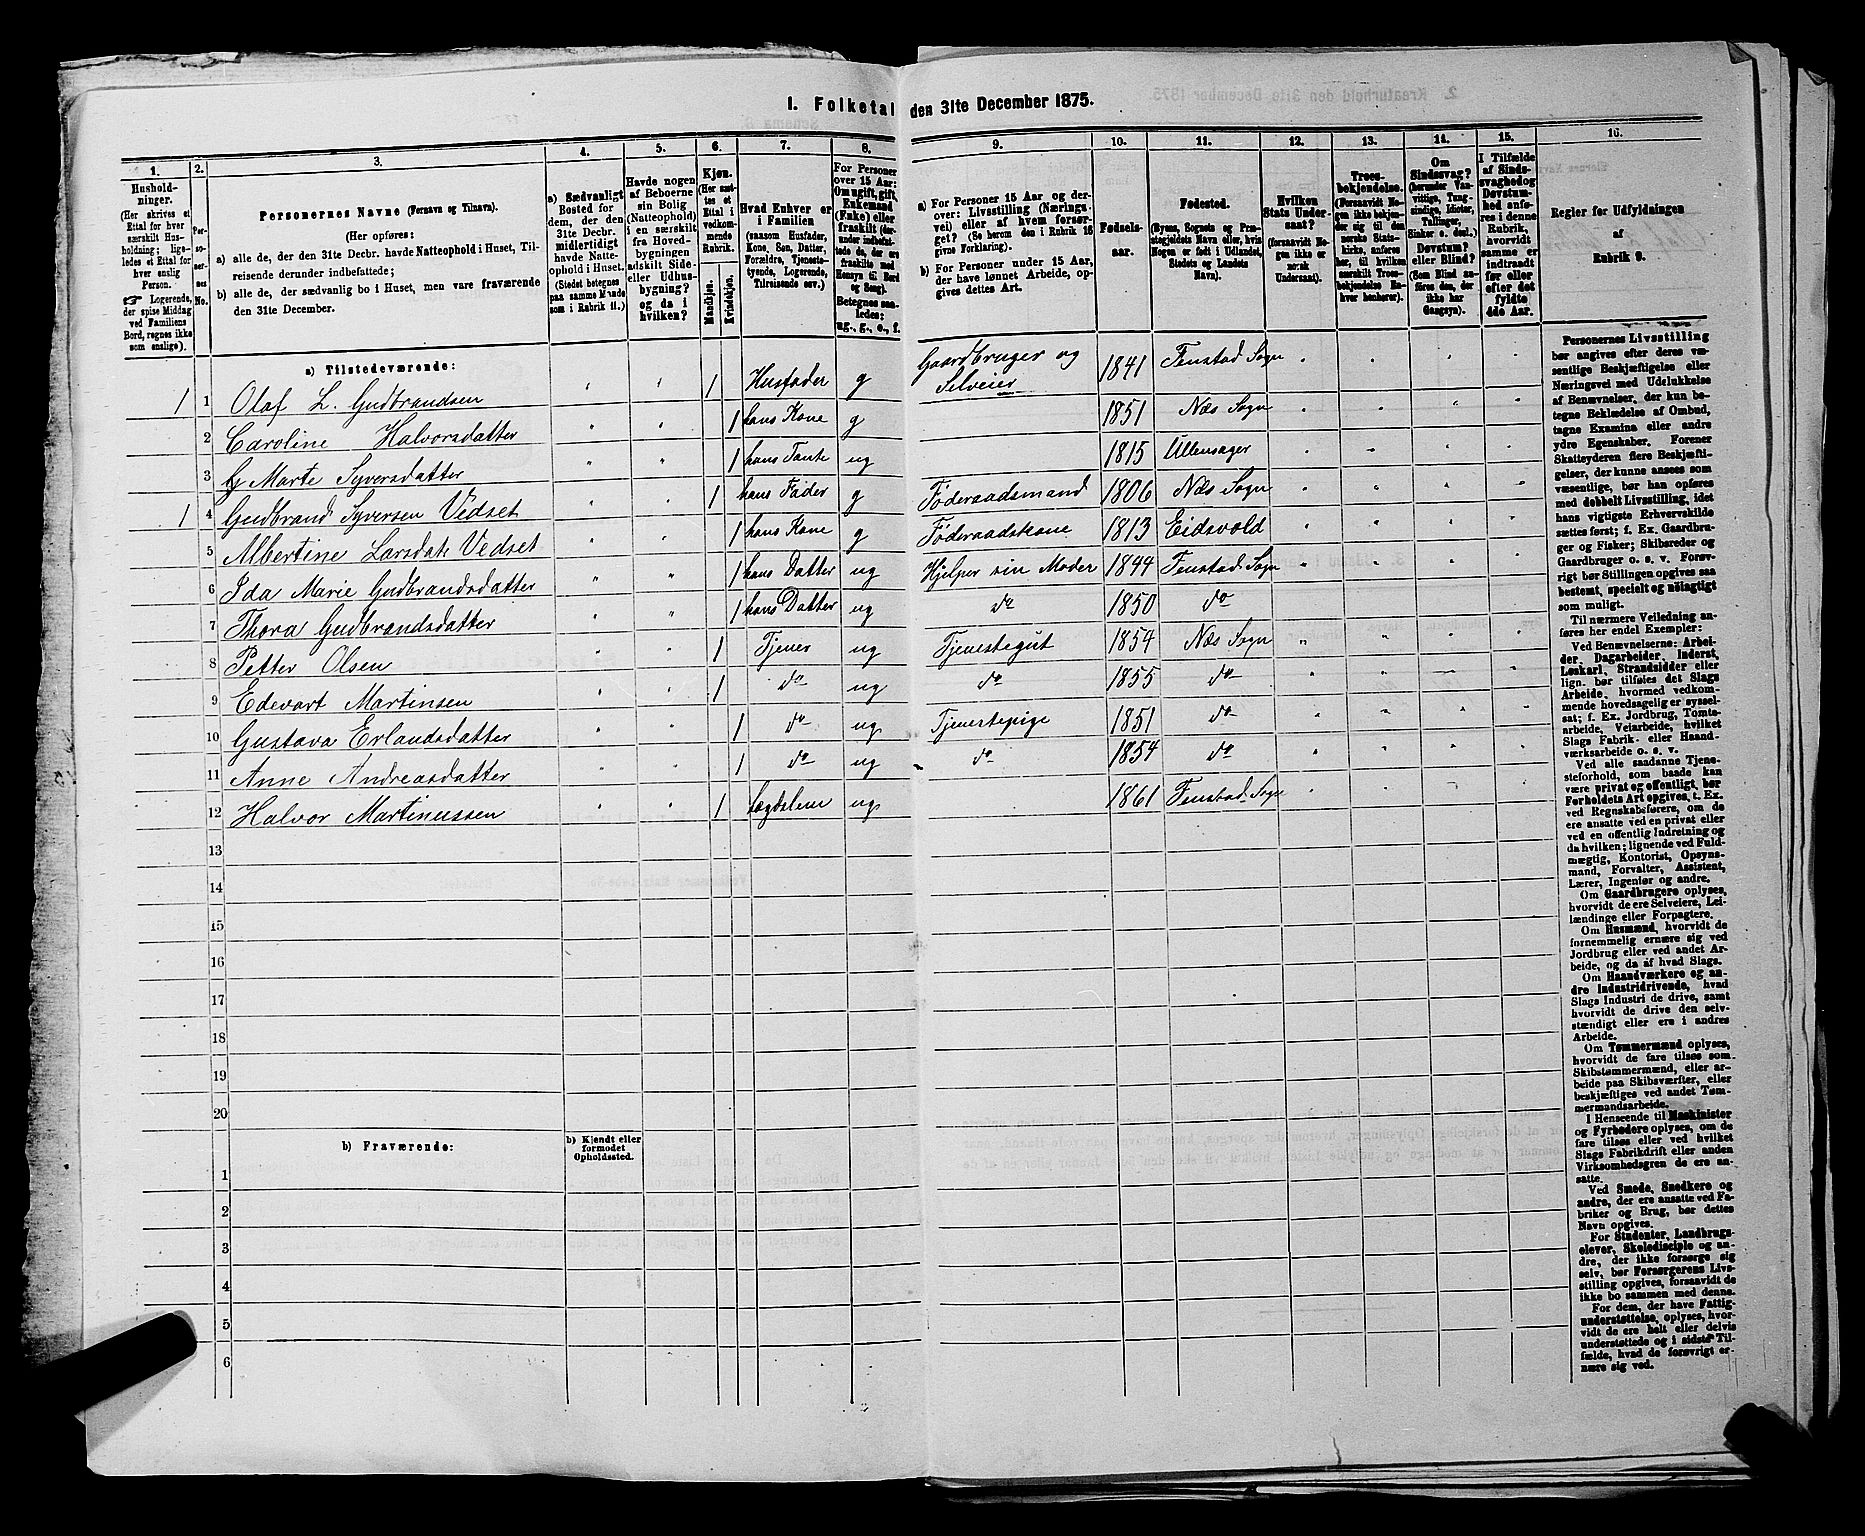 I. Folketal den 31te December 1875.
1. 2. 3. 4. 5. 6. 7. 8. 9. 10. 11. 12. 13. 14. 15. 16.
Husholdninger.
(Her skrives et Ettal for hver særskilt Husholdning; ligeledes et Ettal for hver enslig Person.
☞ Logerende, der spise Middag ved Familiens Bord, regnes ikke som enslige).
Personernes No.
Personernes Navne (Fornavn og Tilnavn).
(Her opføres:
a) alle de, der den 31te Decbr. havde Natteophold i Huset, Tilreisende derunder indbefattede;
b) alle de, der sædvanlig bo i Huset, men vare fraværende den 31te December.
a) Sædvanligt Bosted for dem, der den 31te Decbr. midlertidigt havde Natteophold i Huset. (Stedet betegnes paa samme Maade som i Rubrik 11.)
Havde nogen af Beboerne sin Bolig (Natteophold) i en særskilt fra Hovedbygningen adskilt Side- eller Udhusbygning? og da i hvilken?
Kjøn. (Her sættes et Ettal i vedkommende Rubrik.
Mandkjøn. Kvindekjøn.
Hvad Enhver er i Familien (saasom Husfader, Kone, Søn, Datter, Forældre, Tjenestetyende, Logerende, Tilreisende osv.)
For Personer over 15 Aar: Om ugift, gift, Enkemand (Enke) eller fraskilt (derunder indbefattede de, der ere fraskilte med Hensyn til Bord og Seng).
Betegnes saaledes: ug., g., e., f.
a) For Personer 15 Aar og derover: Livsstilling (Næringsvei) eller af hvem forsørget? (Se herom den i Rubrik 16 givne Forklaring).
b) For Personer under 15 Aar, der have lønnet Arbeide, opgives dettes Art.
Fødselsaar.
Fødested. (Byens, Sognets og Præstegjeldets Navn eller, hvis Nogen er født i Udlandet, Stedets og Landets Navn).
Hvilken Stats Undersaat? (forsaavidt Nogen ikke er norsk Undersaat).
Troesbekjendelse. (Forsaavidt Nogen ikke bekjender sig til den norske Statskirke, anføres her, til hvilken særskilt Troesbekjendelse Enhver henhører).
Om Sindssvag? (herunder Vanvittige, Tungsindige, Idioter, Tullinger, Sinker o. desl.). Døvstum? eller Blind? (Som Blind anføres den, der ikke har Gangsyn).
I Tilfælde af Sindssvaghed og Døvstumhed anføres i denne Rubrik, hvorvidt samme er indtraadt før eller efter det fyldte 4de Aar.
Regler for Udfyldningen af Rubrik 9.
a) Tilstedeværende:
1 1 Olaf L. Gudbrandsen 1 Husfader g Gaardbruger og Selveier 1841 Fenstad Sogn
2 Caroline Halvorsdatter 1 hans Kone g 1851 Næs Sogn
3 G Marte Syversdatter 1 hans Tante ug 1815 Ullensager
1 4 Gudbrand Syversen Vedset 1 hans Fader g Føderaadsmand 1806 Næs Sogn
5 Albertine Larsdatr Vedset 1 hans Kone g Føderaadskone 1813 Eidsvold
6 Ida Marie Gudbrandsdatter 1 hans Datter ug Hjelper sin Moder 1844 Fenstad Sogn
7 Thora Gudbrandsdatter 1 hans Datter ug do 1850 do
8 Petter Olsen 1 Tjener ug Tjenestegut 1854 Næs Sogn
9 Edevart Martinsen 1 do ug do 1855 do
10 Gustava Erlandsdatter 1 do ug Tjenestepige 1851 do
11 Anne Andreasdatter 1 do ug do 1854 do
12 Halvor Martinussen 1 Lægdslem ug 1861 Fenstad Sogn
13
14
15
16
17
18
19
20
b) Fraværende:
b) Kjendt eller formodet Opholdssted.
1
2
3
4
5
6
Personernes Livsstilling
bør angives efter deres væ-
sentlige Beskjæftigelse eller
Næringsvei med Udelukkelse
af Benævnelser, der kun be-
tegne Beklædelse af Ombud,
tagne Examina eller andre
ydre Egenskaber. Forener
Skatteyderen flere Beskjæfti-
gelser, der kunne ansees som
væsentlige, bør han opføres
med dobbelt Livsstilling, idet
hans vigtigste Erhvervskilde
sættes først; f. Ex. Gaardbru-
ger og Fisker; Skibsreder og
Gaardbruger o. s. v. Forøv-
rigt bør Stillingen opgives saa
bestemt, specielt og nøiagtigt
som muligt.
Til nærmere Veiledning an-
føres her endel Exempler:
Ved Benævnelserne: Arbei-
der, Dagarbeider, Inderst,
Løskarl, Strandsidder eller
lign. bør tilføies det Slags
Arbeide, hvormed vedkom-
mende hovedsagelig er syssel-
sat; f. Ex. Jordbrug, Tomte-
arbeide, Veiarbeide, hvilket
Slags Fabrik- eller Haand-
værksarbeide o. s. v.
Ved alle saadanne Tjene-
steforhold, som baade kan
være privat og offentligt, bør
Forholdets Art opgives, t. Ex.
ved Regnskabsførere, om de
ere ansatte ved en privat eller
ved en offentlig Indretning og
da hvilken; lignende ved Fuld-
mægtig, Kontorist, Opsyns-
mand, Forvalter, Assistent,
Lærer, Ingeniør og andre.
Om Gaardbrugere oplyses,
hvorvidt de ere Selveiere, Lei-
lændinge eller Forpagtere.
Om Husmænd, hvorvidt de
fornemmelig ernære sig ved
Jordbrug eller ved andet Ar-
beide, og da af hvad Slags.
Om Haandværkere og an-
dre Industridrivende, hvad
Slags Industri de drive, samt
hvorvidt de drive den selv-
stændigt eller ere i andres
Arbeide.
Om Tømmermænd oplyses,
hvorvidt de fare tilsøs som
Skibstømmermænd, eller ar-
beide paa Skibsværfter, eller
beskjæftiges ved andet Tøm-
mermandsarbeide.
I Henseende til Maskinister
og Fyrbødere oplyses, om de
fare tilsøs eller ved hvilket
Slags Fabrikdrift eller anden
Virksomhedsgren de ere an-
satte.
Ved Smede, Snedkere og
andre, der ere ansatte ved Fa-
briker og Brug, bør dettes
Navn opgives.
For Studenter, Landbrugs-
elever, Skoledisciple og an-
dre, der ikke forsørge sig
selv, bør Forsørgerens Livs-
stilling opgives, forsaavidt de
ikke bo sammen med denne.
For dem, der have Fattig-
understøttelse, oplyses, hvor-
vidt de ere helt eller delvis
understøttede og i sidste Til-
fælde, hvad de forøvrigt er-
nære sig ved.